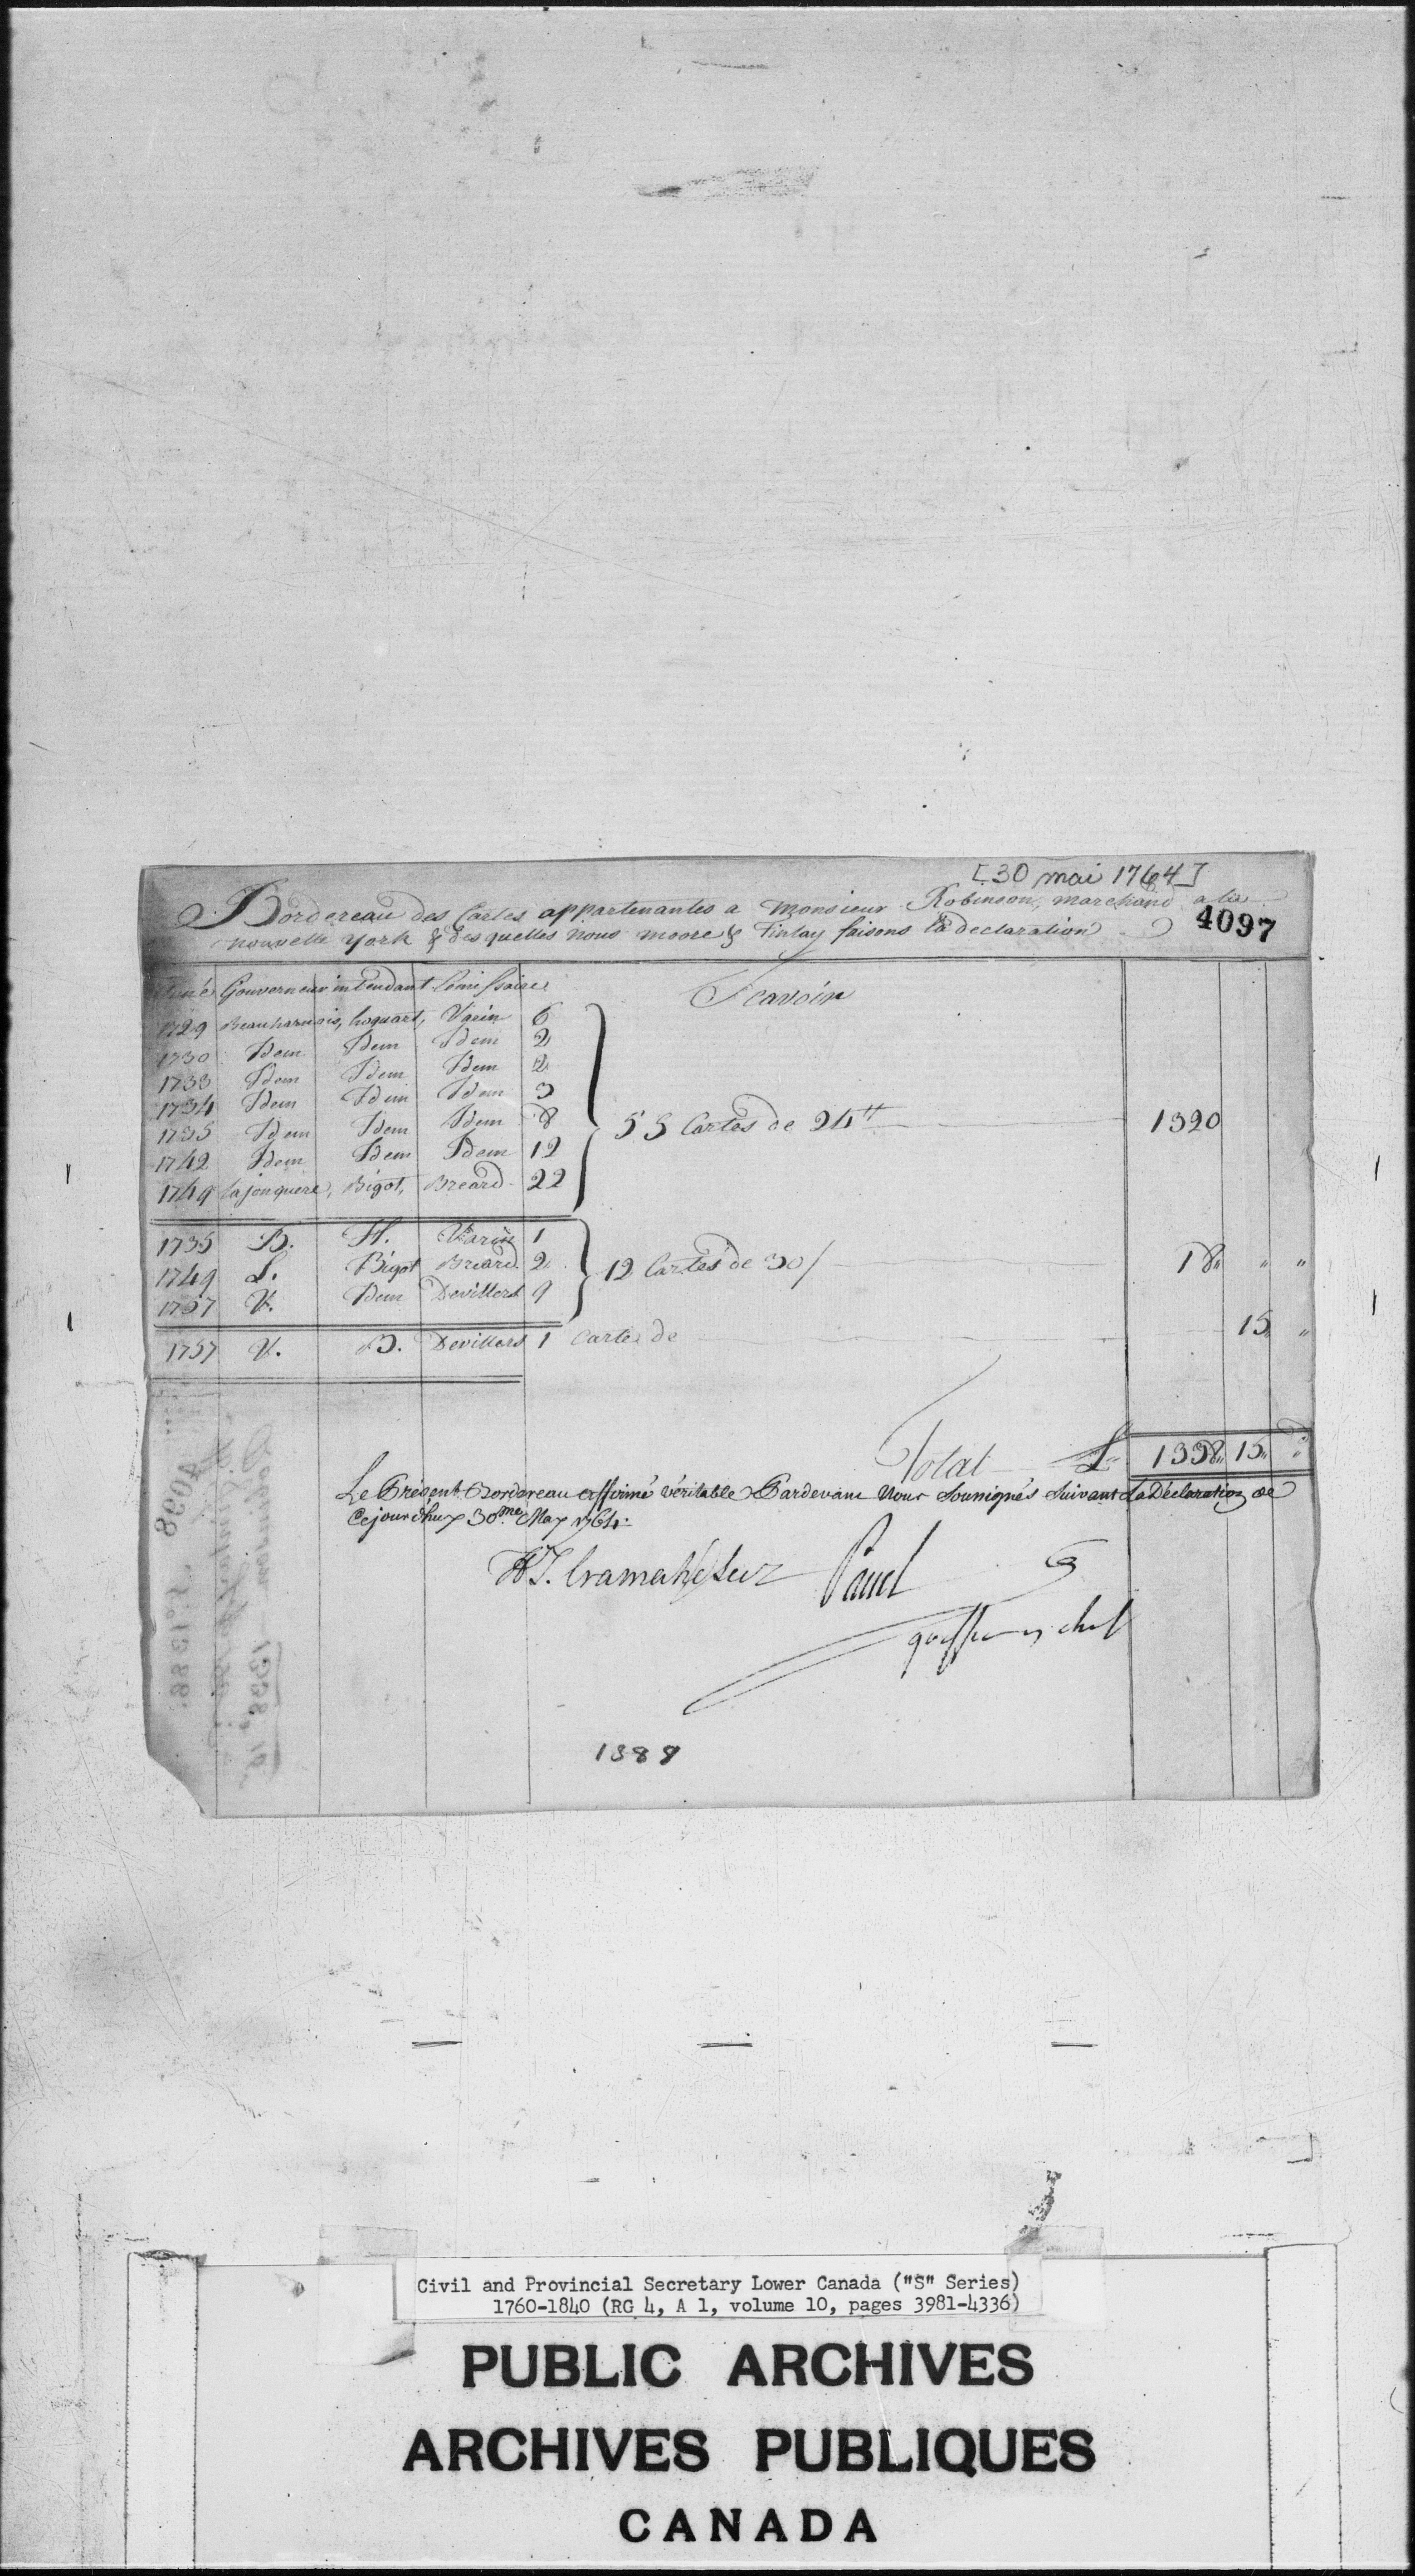 [30 mai 1764]
Bordereau des Cartes appartenantes a Monsieur Robinson, marchand a la
4097
nouvelle york & des quelles nous moore & Finlay faisons la declaration
Gouverneur intendant Commissaire
Scavoir
1729 Beauharnois, hoquart, Varin 6
1730 Idem Idem Idem 2
1733 Idem Idem Idem 2
1734 Idem Idem Idem 3
1735 Idem Idem Idem 8
55 Cartes de 24tt 1320
1742 Idem Idem Idem 12
1749 Lajonquere, Bigot, Breard 22
1735 B. H. Varin 1
1749 L. Bigot Breard 2
12 Cartes de 30/ 18 " "
1757 V. Idem Devillers 9
1757 V. B. Devillers 1 Carte de 15 "
Total L 1338 15
Le Présent Bordereau affirmé véritable Pardevant Nous Soussignés Suivant La Déclaration de
Cejourd'huy 30me May 1764.
H T. Cramahé Panet
greffier en chef
4098
1338 15
1388
Civil and Provincial Secretary Lower Canada ("S" Series)
1760-1840 (RG 4, A 1, volume 10, pages 3981-4336)
PUBLIC ARCHIVES
ARCHIVES PUBLIQUES
CANADA